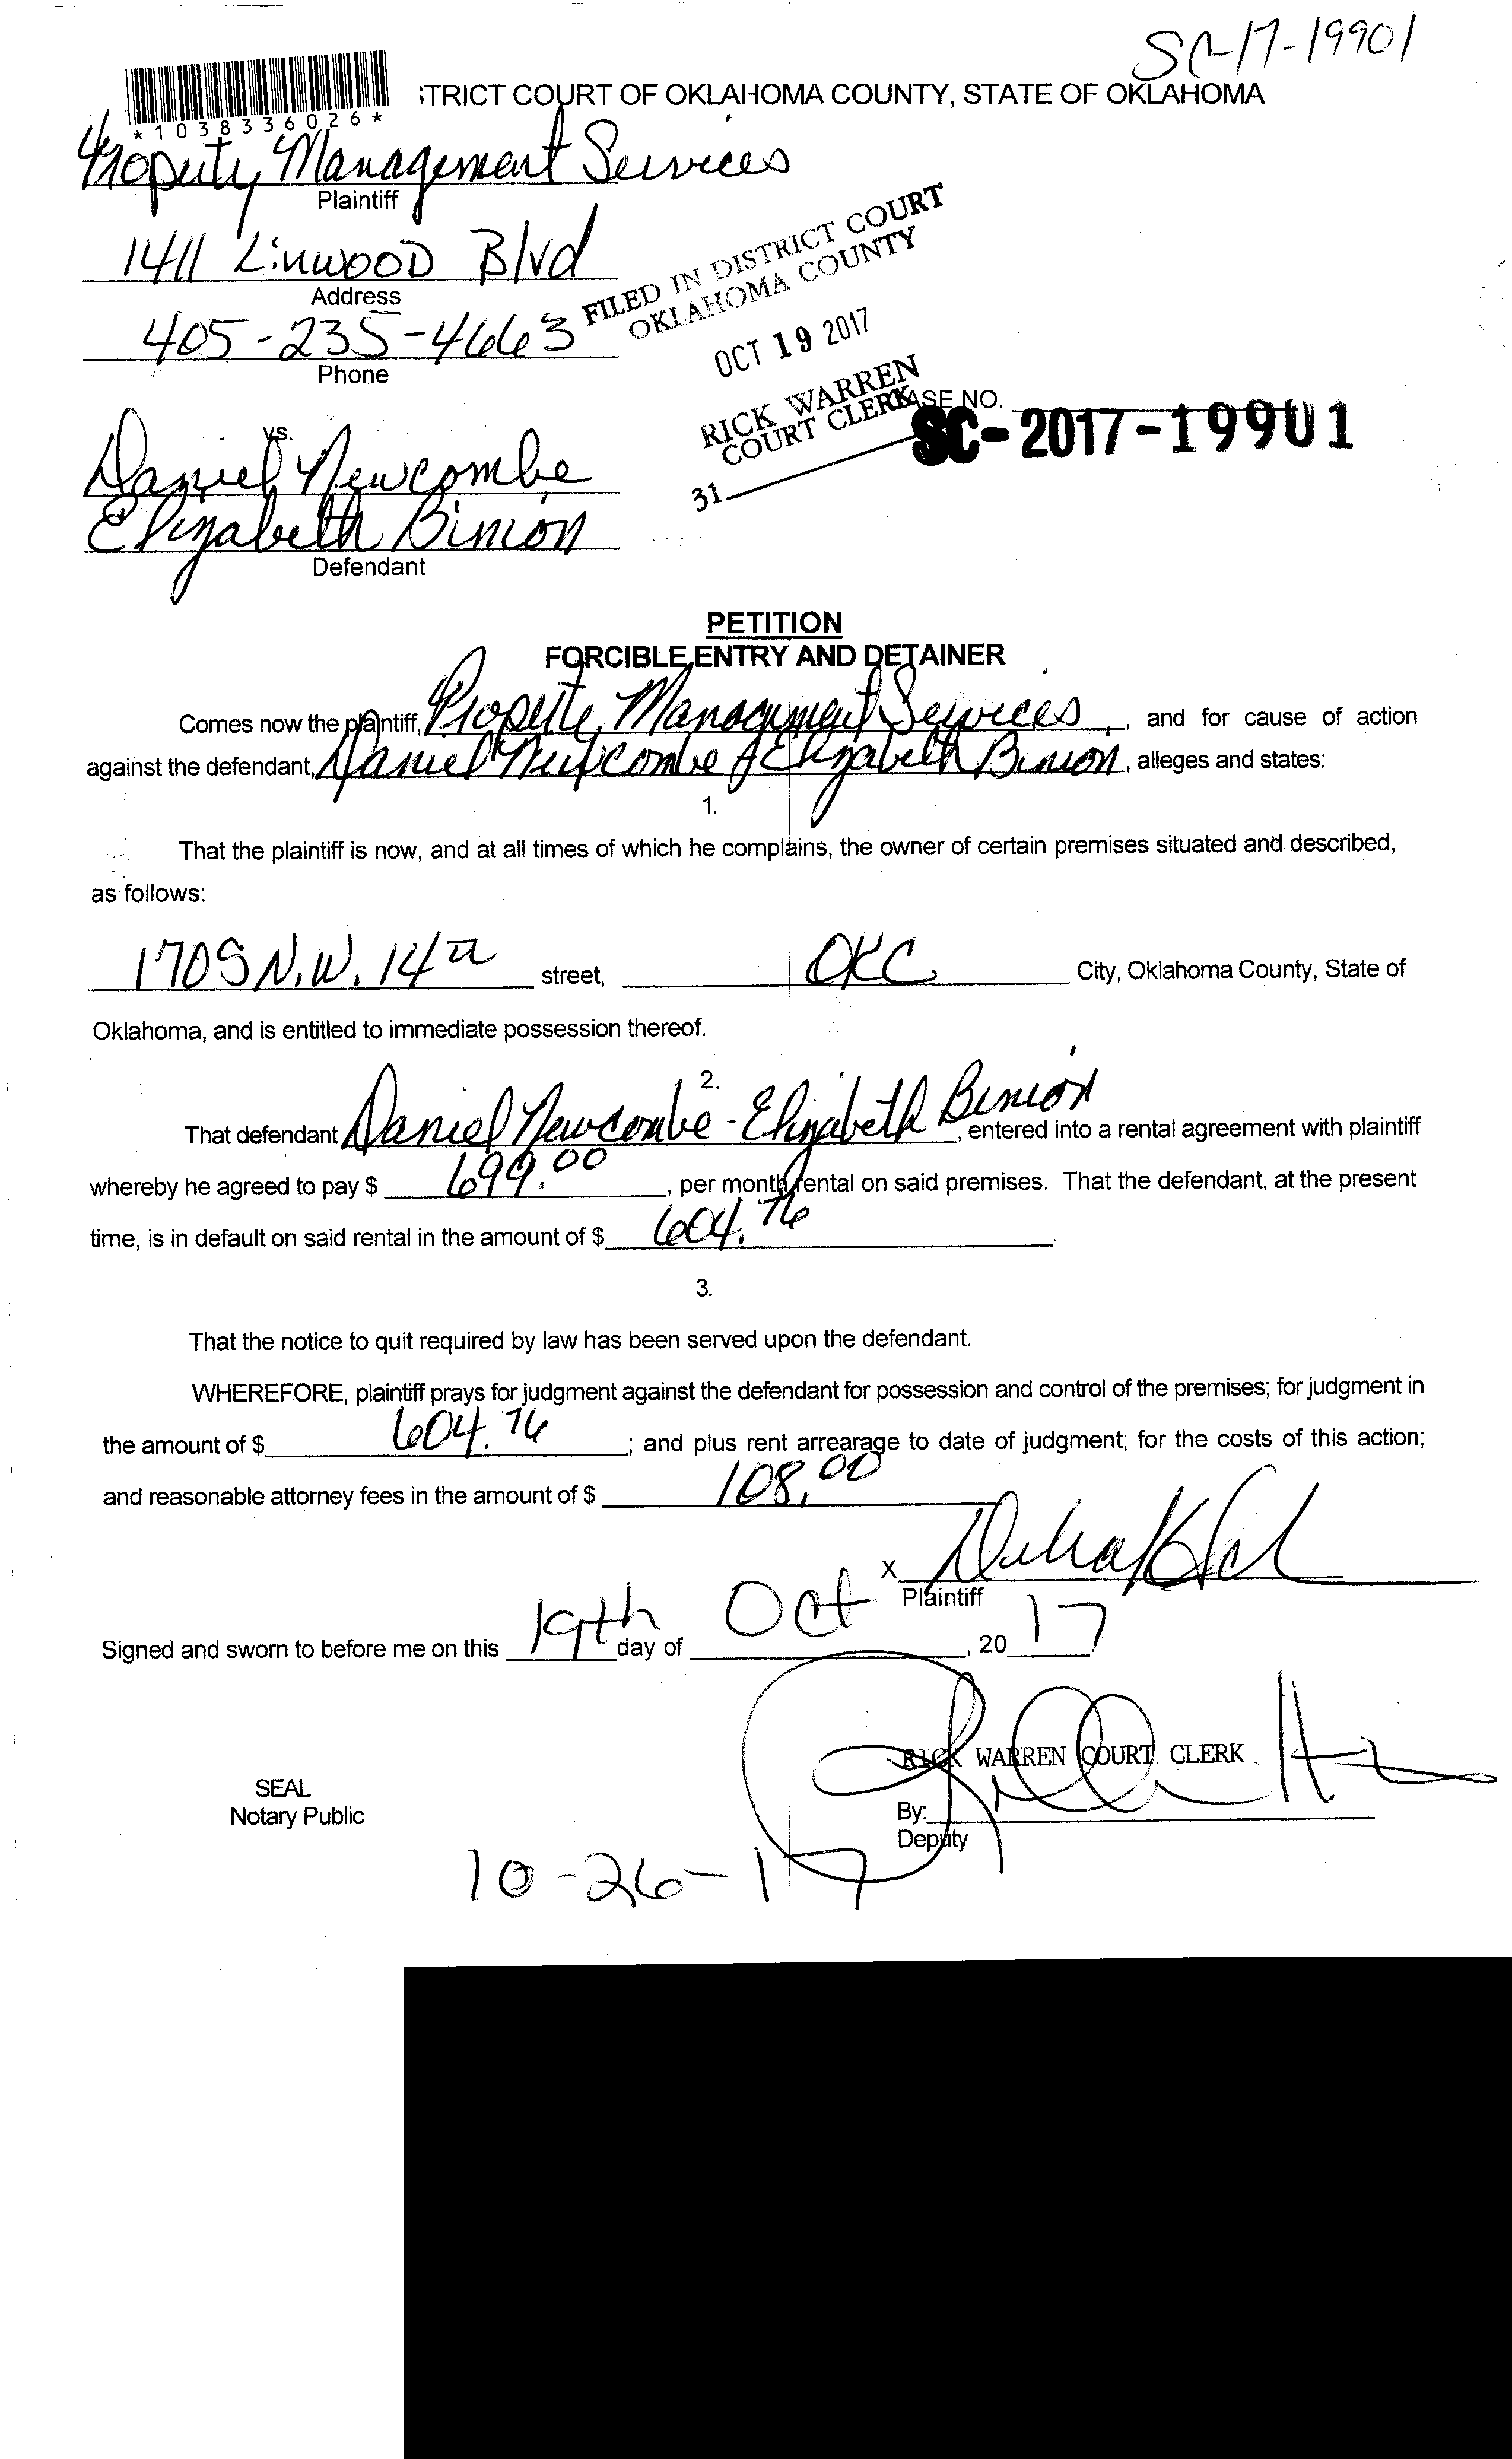 SC-17-19901
STRICT COURT OF OKLAHOMA COUNTY, STATE OF OKLAHOMA
*1038336026*
Property Management Services
Plaintiff
1411 Linwood Blvd
Address
405-235-4663
Phone
FILED IN DISTRICT COURT
OKLAHOMA COUNTY
OCT 19 2017
RICK WARREN
COURT CLERK
31
CASE NO.
SC-2017-19901
vs.
Daniel Newcombe
Elizabeth Binion
Defendant
PETITION
FORCIBLE ENTRY AND DETAINER
Comes now the plaintiff, Property Management Services, and for cause of action
against the defendant, Daniel Newcombe & Elizabeth Binion, alleges and states:
1.
That the plaintiff is now, and at all times of which he complains, the owner of certain premises situated and described,
as follows:
1709 N.W. 14th street, OKC City, Oklahoma County, State of
Oklahoma, and is entitled to immediate possession thereof.
2.
That defendant Daniel Newcombe - Elizabeth Binion, entered into a rental agreement with plaintiff
whereby he agreed to pay $ 699.00, per month rental on said premises. That the defendant, at the present
time, is in default on said rental in the amount of $ 604.76.
3.
That the notice to quit required by law has been served upon the defendant.
WHEREFORE, plaintiff prays for judgment against the defendant for possession and control of the premises; for judgment in
the amount of $ 604.76; and plus rent arrearage to date of judgment; for the costs of this action;
and reasonable attorney fees in the amount of $ 108.00
X
Plaintiff
Signed and sworn to before me on this 19th day of Oct, 20 17
RICK WARREN COURT CLERK
SEAL
Notary Public
By:
Deputy
10-26-17